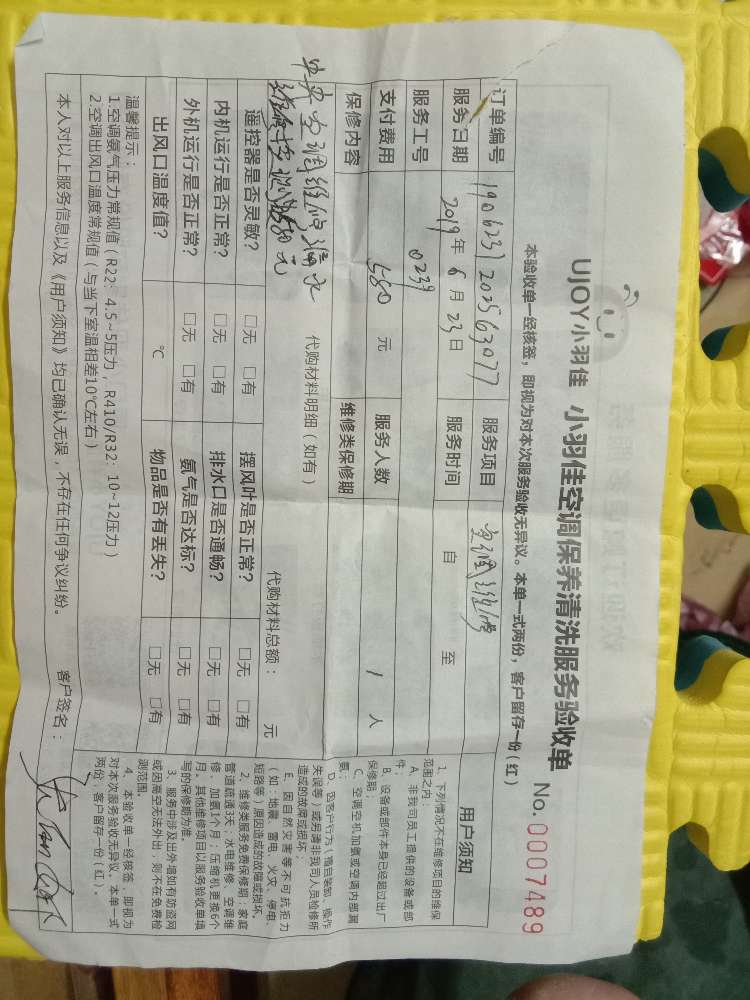 UJOY小羽佳 小羽佳空调保养清洗服务验收单 No.0007489
本验收单一经核签，即视为对本次服务验收无异议。本单一式两份，客户留存一份（红）
订单编号 1906237202563077 服务项目 空调维修
服务日期 2019年6月23日 服务时间 自 至
服务工号 0239
支付费用 580 元 服务人数 1 人
保修内容 维修类保修期
中央空调维修漏水 代购材料明细（如有）
代购材料总额： 元
遥控器是否灵敏？ □无 □有 摆风叶是否正常？ □无 □有
内机运行是否正常？ □无 □有 排水口是否通畅？ □无 □有
外机运行是否正常？ □无 □有 氨气是否达标？ □无 □有
出风口温度值？ ℃ 物品是否有丢失？ □无 □有
温馨提示：
1.空调氨气压力常规值（R22：4.5~5压力，R410/R32：10~12压力）
2.空调出风口温度常规值（与当下室温相差10℃左右）
本人对以上服务信息以及《用户须知》均已确认无误，不存在任何争议纠纷。 客户签名：
用户须知
1、下列情况不在维修项目的维保
范围之内：
A、非我司员工提供的设备或部
件；
B、设备或部件本身已经超过出厂
保修期；
C、空调空机加氨或空调内部漏
氨；
D、因客户行为（擅自装卸、操作
失误等）或另请非我司人员检修所
造成的故障或损坏；
E、因自然灾害等不可抗拒力
（如：地震、雷电、火灾、停电、
短路等）原因造成的故障或损坏。
2、维修类服务免费保修期：家庭
管道疏通3天；水电维修、空调维
修、加氨1个月；压缩机更换6个
月。其他维修项目以服务验收单填
写的保修期为准。
3、服务中涉及出外墙如有防盗网
或因隔空无法外出，则不在免费检
测范围。
4、本验收单一经核签，即视为
对本次服务验收无异议。本单一式
两份，客户留存一份（红）。